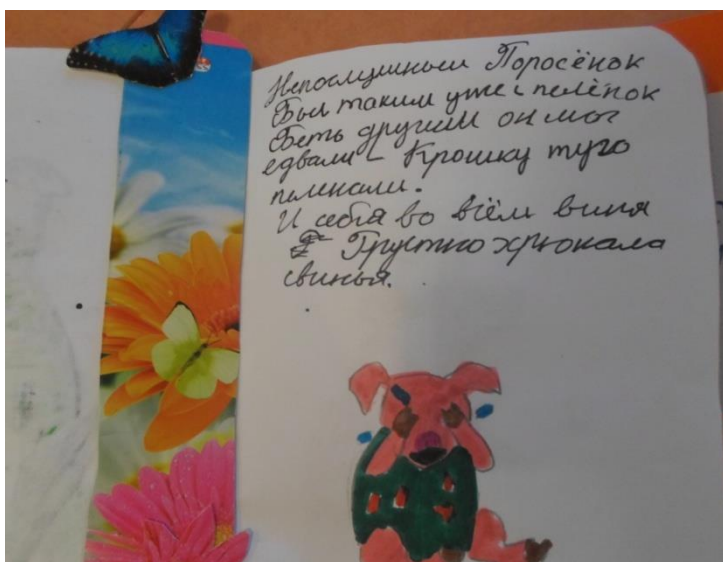 Непослушный Поросёнок
Был таким уже с пелёнок
Быть другим он мог
едвали – Крошку туго
пеленали.
И себя во всём виня
Грустно хрюкала
свинья.